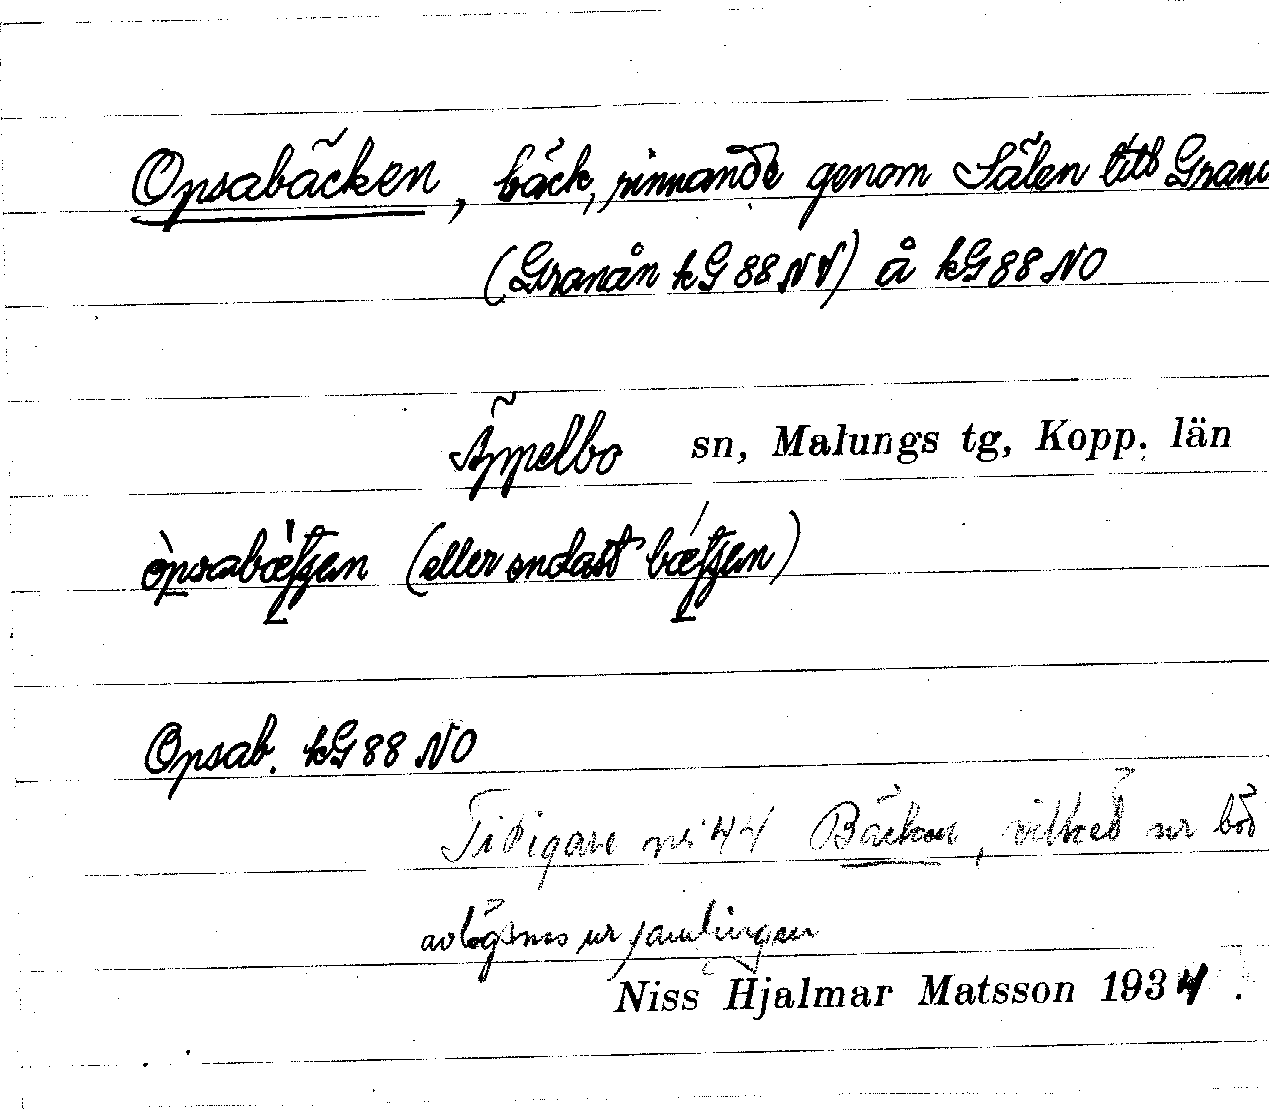 Opsabäcken, bäck, rinnande genom Sälen till Granå
(Granån kG 88 NV) å kG 88 NO
Äppelbo sn, Malungs tg, Kopp. län
(eller endast
Opsab. kG 88 NO
Tidigare nr 44 Bäcken, vilket nr bör
avlägsnas ur samlingen
Niss Hjalmar Matsson 1934.